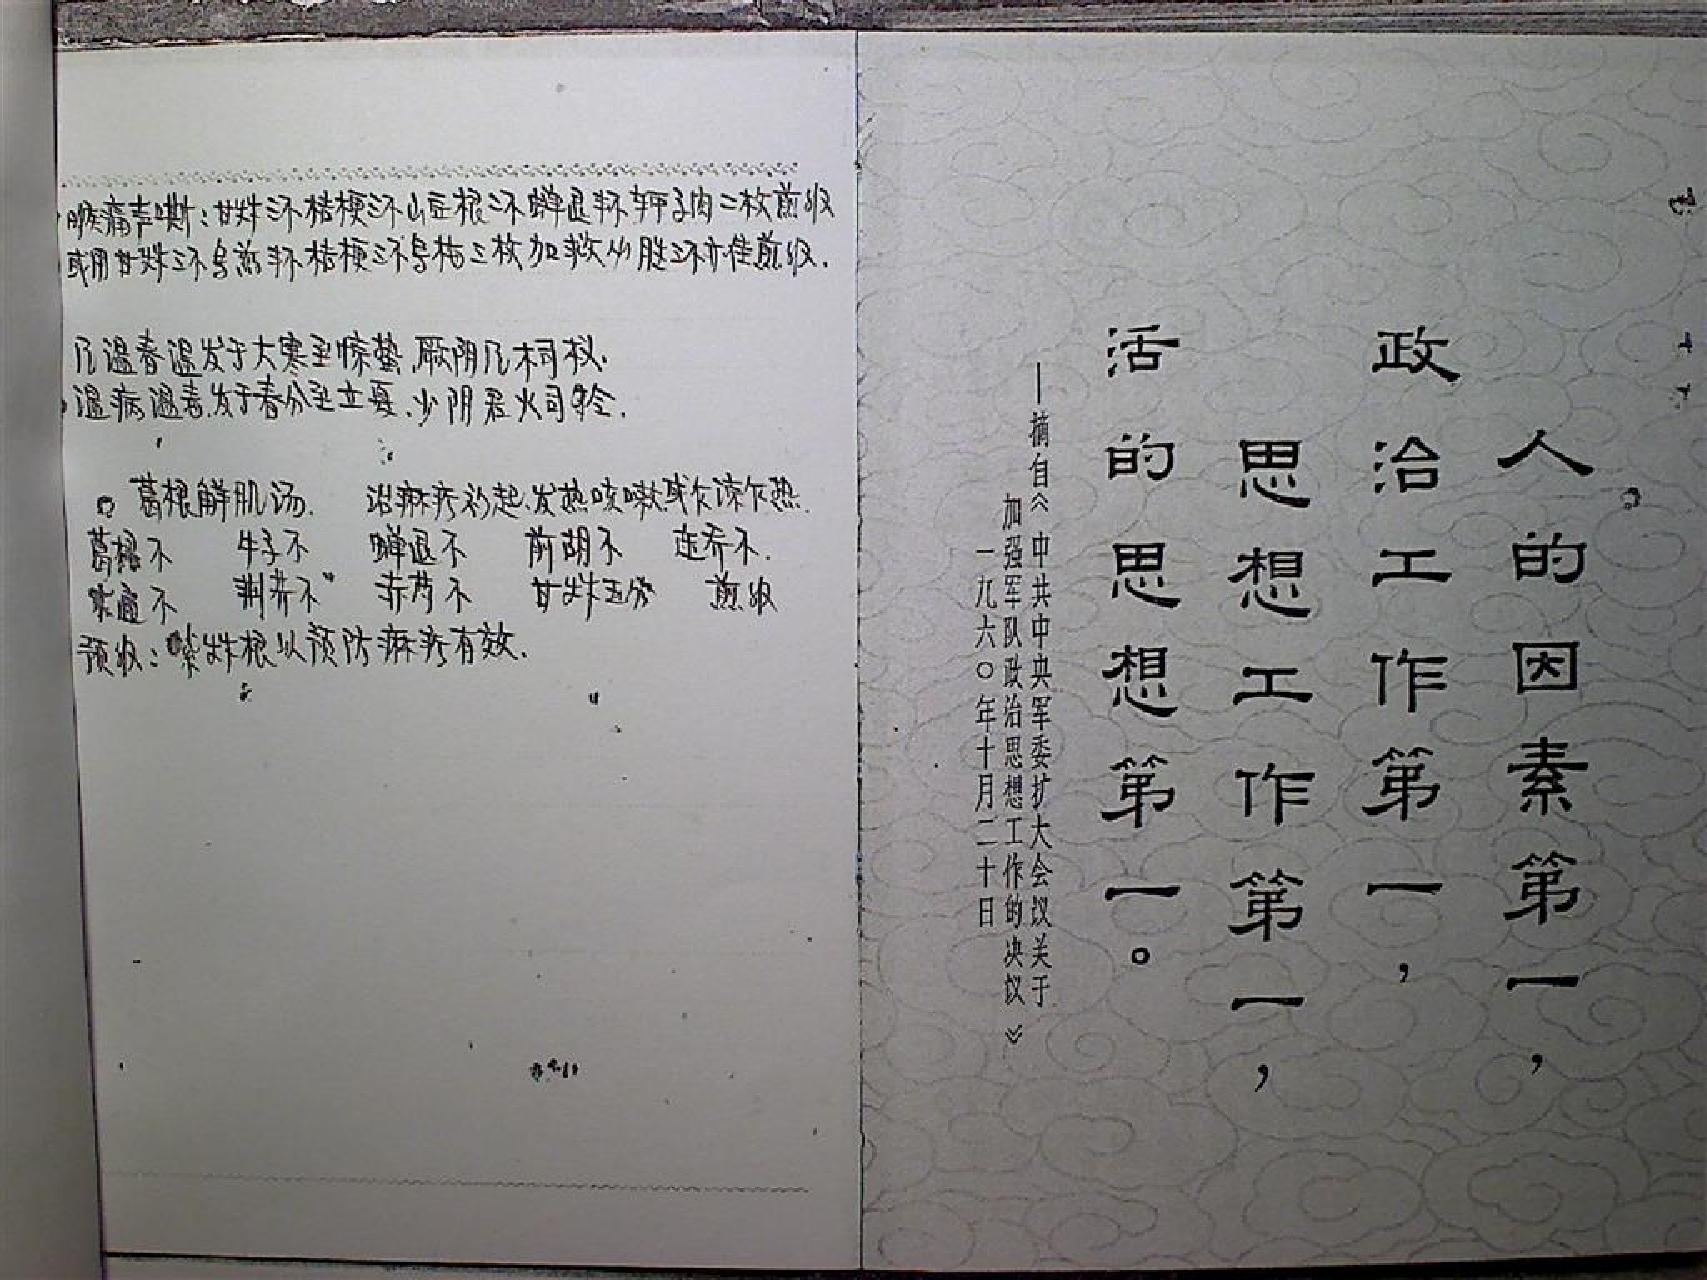 喉痛声嘶：甘草三不桔梗三不山豆根三不蝉退半不 子肉二枚煎服
或用甘草三不 半不桔梗三不乌梅三枚加 三不亦佳煎服.
风温春温发于大寒至惊蛰,厥阴风木司权.
温病温毒,发于春分至立夏.少阴君火司令.
葛根解肌汤. 治麻疹初起,发热咳嗽或乍凉乍热.
葛根不 牛子不 蝉退不 前胡不 连乔不.
木通不 荆芥不 赤芍不 甘草五分 煎服
预收：紫草根以预防麻疹有效.
人的因素第一，
政治工作第一，
思想工作第一，
活的思想第一。
—摘自《中共中央军委扩大会议关于
加强军队政治思想工作的决议》
一九六〇年十月二十日